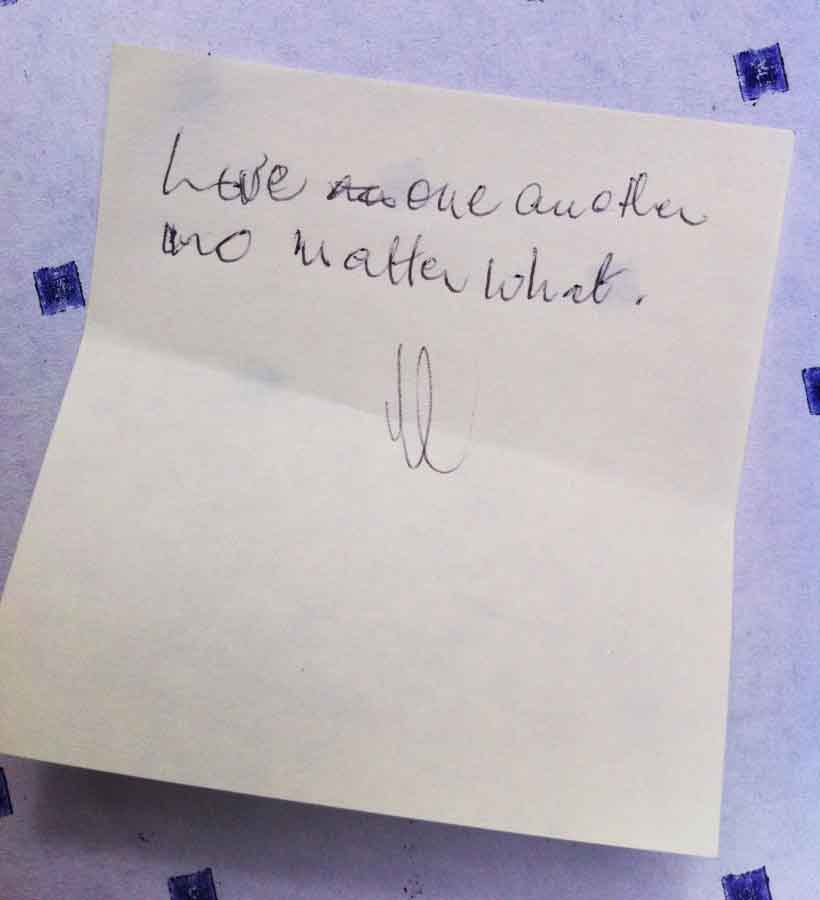 Love one another
no matter what.